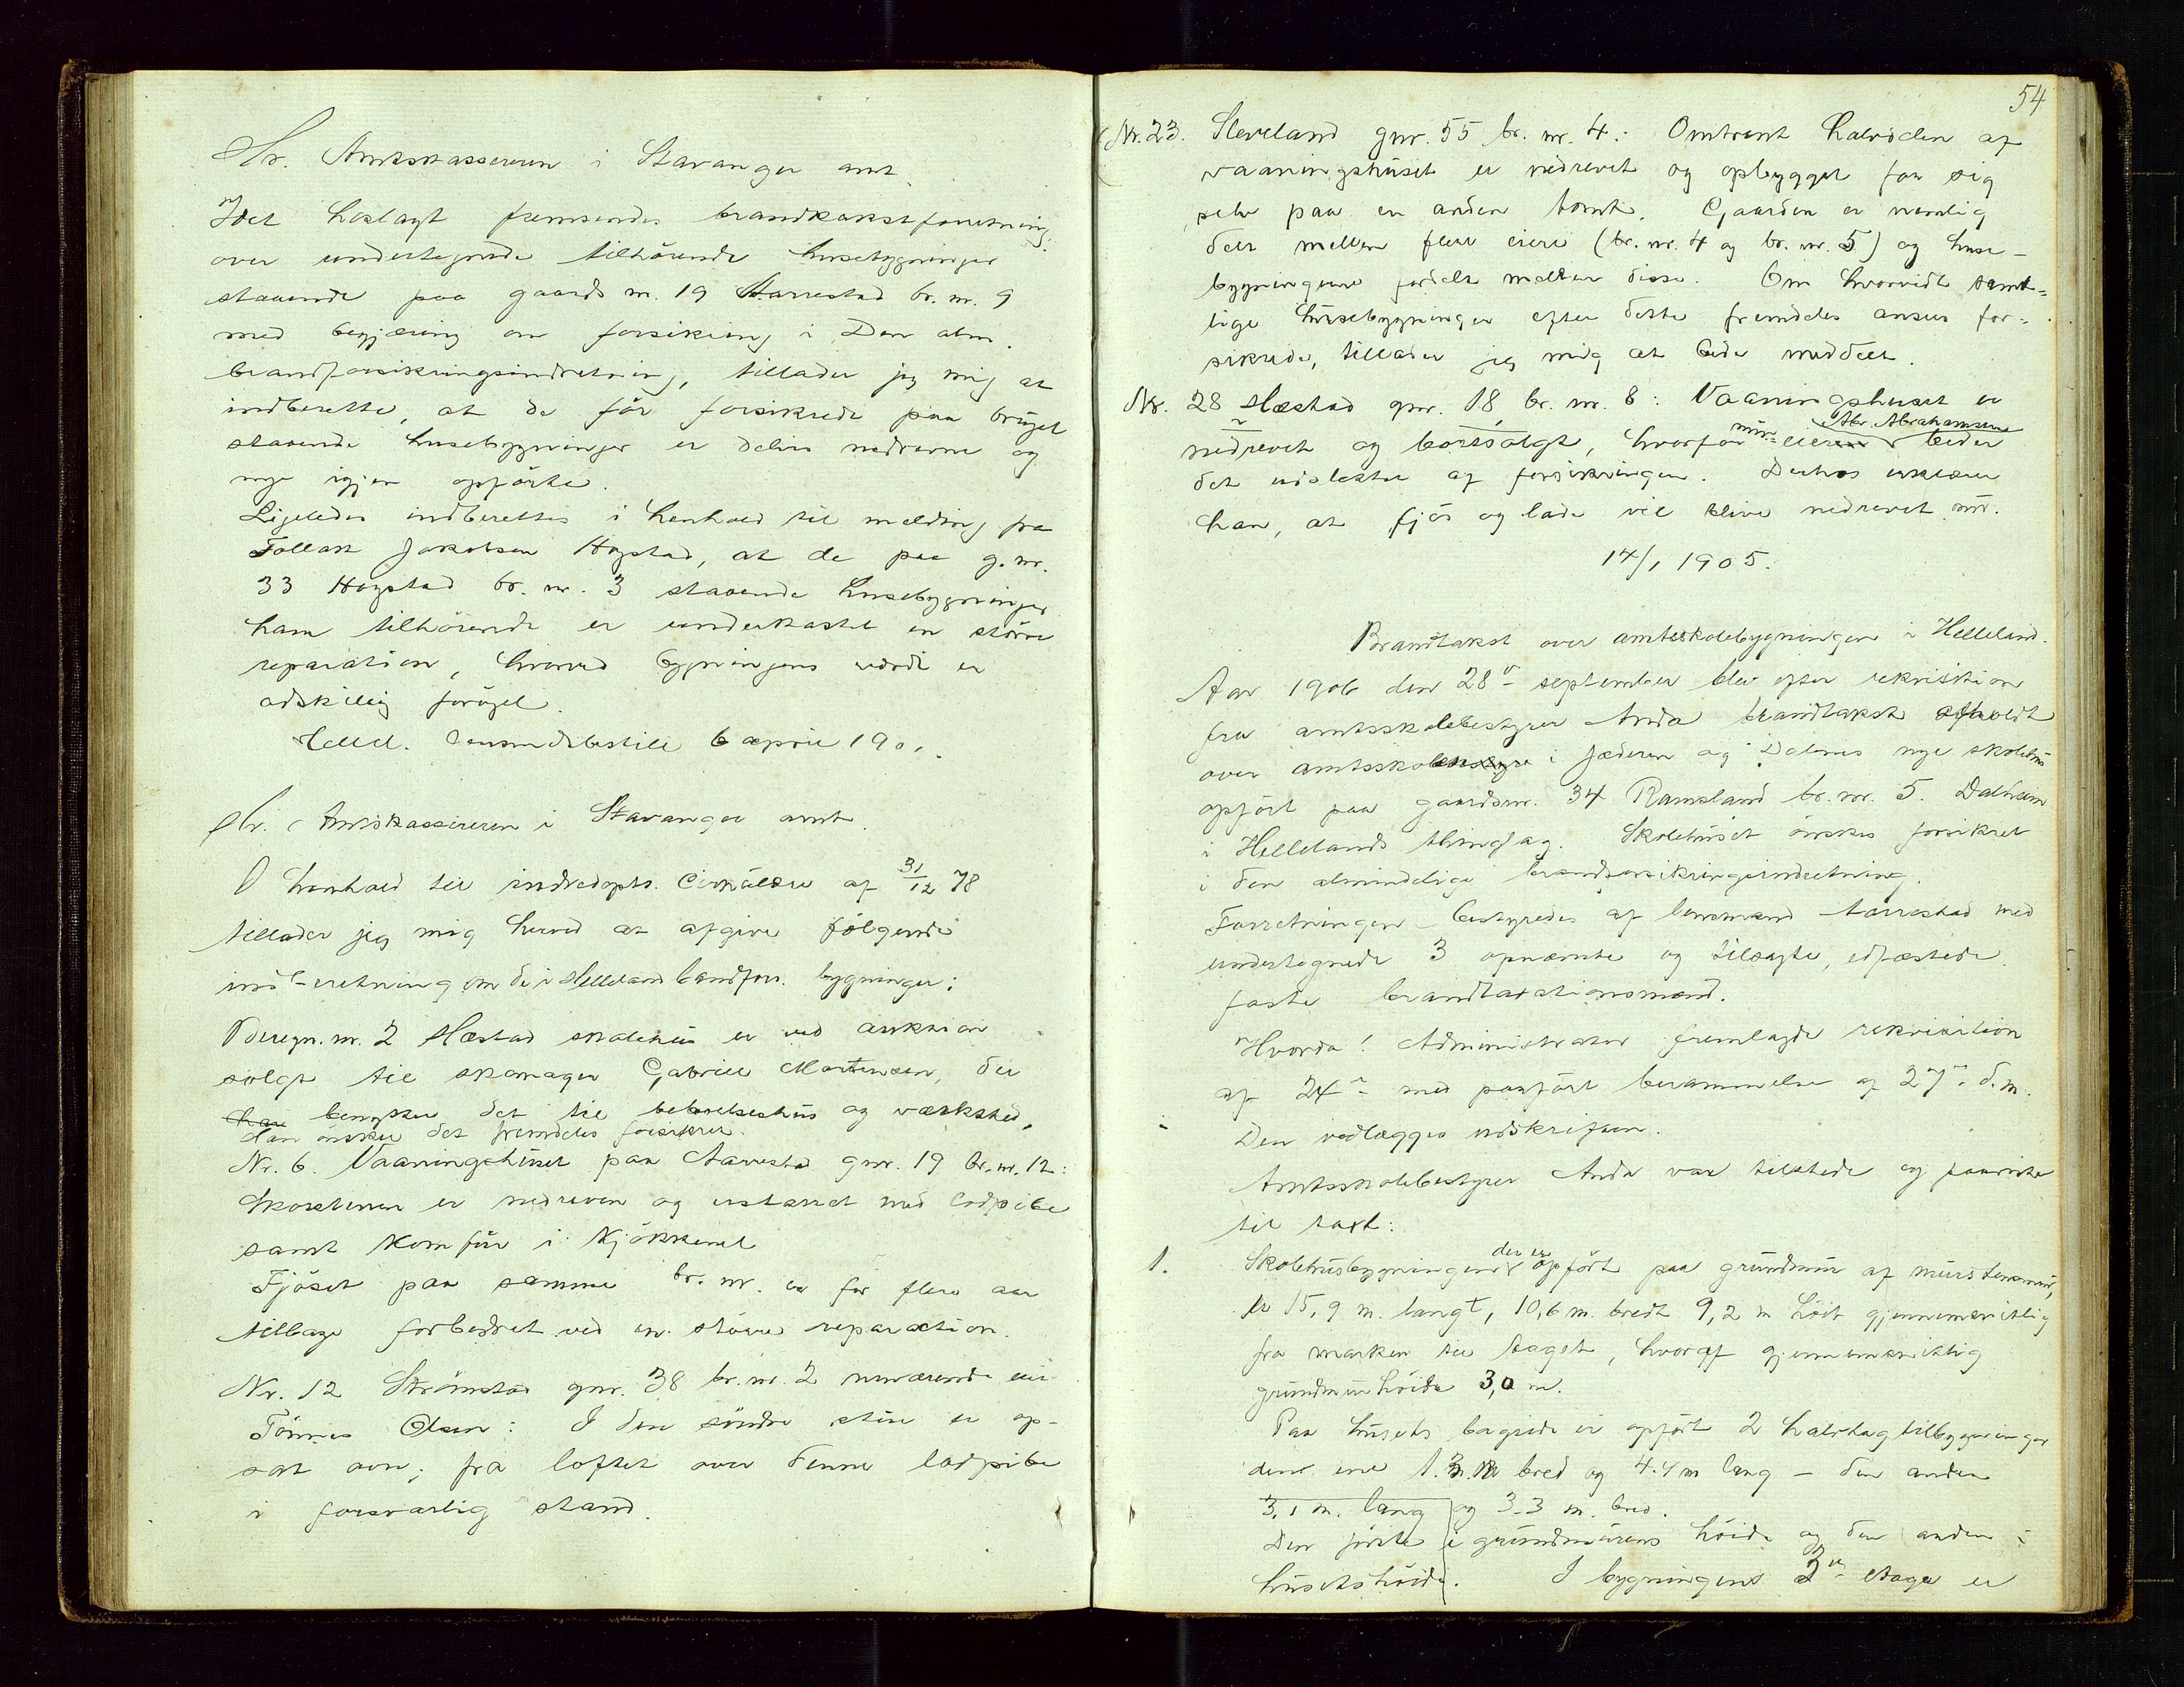 Hr. Amtskassereren i Stavanger amt.
Idet hoslagt fremsendes brandtakstforretning
over undertegnede tilhörende husebygninger
staaende paa gaards nr. 19 Aarrestad br. nr. 9
med begjæring om forsikring i Den alm.
brandforsikringsindretning, tillader jeg mig at
indberette, at de för forsikrede paa bruget
staaende husebygninger er delvis nedrevne og
nye igjen opförte.
Ligeledes indberettes i henhold til melding fra
Tollak Jakobsen Hogstad, at de paa g. nr.
33 Hogstad br. nr. 3 staaende husebygninger
ham tilhörende er underkastet en större
reparation, hvorved bygningens værdi er
adskillig foröget.
Hellel. Lensmandsbestill. 6 april 1901.
Hr. Amtskassereren i Stavanger amt.
I henhold til indredepts. Cirkulære af 31/12 78
tillader jeg mig herved at afgive fölgende
indberetning om de i Helleland brandfors. bygninger:
nr. 2 Hæstad skolehus er ved auktion
solgt til skomager Gabriel Mortensen, der
har benytter det til beboelseshus og værksted,
Han önsker det fremdeles forsikret.
Nr. 6. Vaaningshuset paa Aarrestad gnr. 19 br. nr. 12:
Skorstenen er nedreven og erstattet med lodpibe
samt komfür i kjökkenet
Fjöset paa samme br. nr. er for flere aar
tilbage forbedret ved en större reparation.
Nr. 12 Strömstad gnr. 38 br. nr. 2 nuværende eier
Tönnes Olsen: I den söndre stue er op-
sat ovn; fra loftet over denne lodpibe
i forsvarlig stand.
54
Nr. 23. Sleveland gnr. 55 br. nr. 4: Omtrent halvdelen af
vaaningshuset er nedrevet og opbygget for sig
selv paa en anden tomt. Gaarden er nemlig
delt mellem flere eiere (br. nr. 4 og br. nr. 5) og huse-
bygningerne fordelt mellem disse. Om hvorvidt samt-
lige husebygninger efter dette fremdeles anses for-
sikrede, tillader jeg mig at bede meddelt.
Nr. 28 Hæstad gnr. 18 br. nr. 8: Vaaningshuset er
nedrevet og bortsolgt, hvorfor nuv. eieren Abr. Abrahamsen beder
det udslettet af forsikringen. Derhos erklærer
han, at fjös og lade vil blive nedrevet nu.
14/1 1905.
Brandtakst over amtsskolebygningen i Helleland.
Aar 1906 den 28de september blev efter rekvisition
fra amtsskolebestyrer Anda brandtakst afholdt
over amtsskolens i Jæderen og Dalernes nye skolehus
opfört paa gaardsnr. 34 Ramsland br. nr. 5. Dalheim
i Hellelands thinglag. Skolehuset önskes forsikret
i den almindelige brandforsikringsindretning.
Forretningen bestyredes af lensmand Aarrestad med
undertegnede 3 opnævnte og tilsagte, edfæstede
faste brandtaxationsmænd.
Hvorda! Administrator fremlagde rekvisition
af 24de med paafört berammelse af 27de d. m.
Den vedlægges udskriften.
Amtsskolebestyrer Anda var tilstede og paaviste
til taxt:
1. Skolehusbygningen, der er opfört paa grundmur af murstensmur,
er 15,9 m. langt, 10,6 m. bredt 9,2 m höit gjennemsnitlig
fra marken til taget, hvoraf gjennemsnitlig
grundmurhöide 3,0 m.
Paa husets bagside er opfört 2 halvtag tilbygninger
den ene 1.3 m bred og 4.4 m lang – den anden
3,1 m. lang og 3.3 m. bred.
Den förste i grundmurens höide og den anden i
husets höide. I bygningens 2de etage er